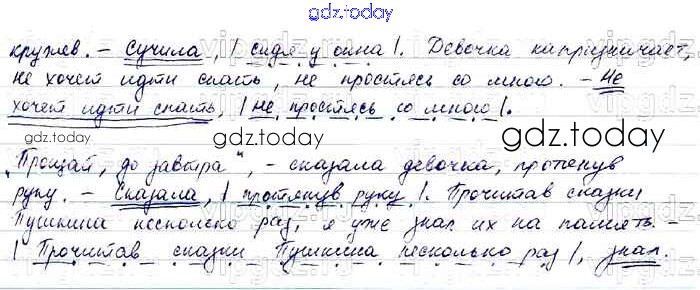 gdz.today
кружев. – Сучила, | сидя у окна |. Девочка капризничает,
не хочет идти спать, не простясь со мною. – Не
хочет идти спать, | не простясь со мною |.
gdz.today
gdz.today
„Прощай, до завтра", – сказала девочка, протянув
руку. – Сказала, | протянув руку |. Прочитав сказки
Пушкина несколько раз, я уже знал их на память. –
| Прочитав сказки Пушкина несколько раз |, знал.
gdz.today
gdz.today